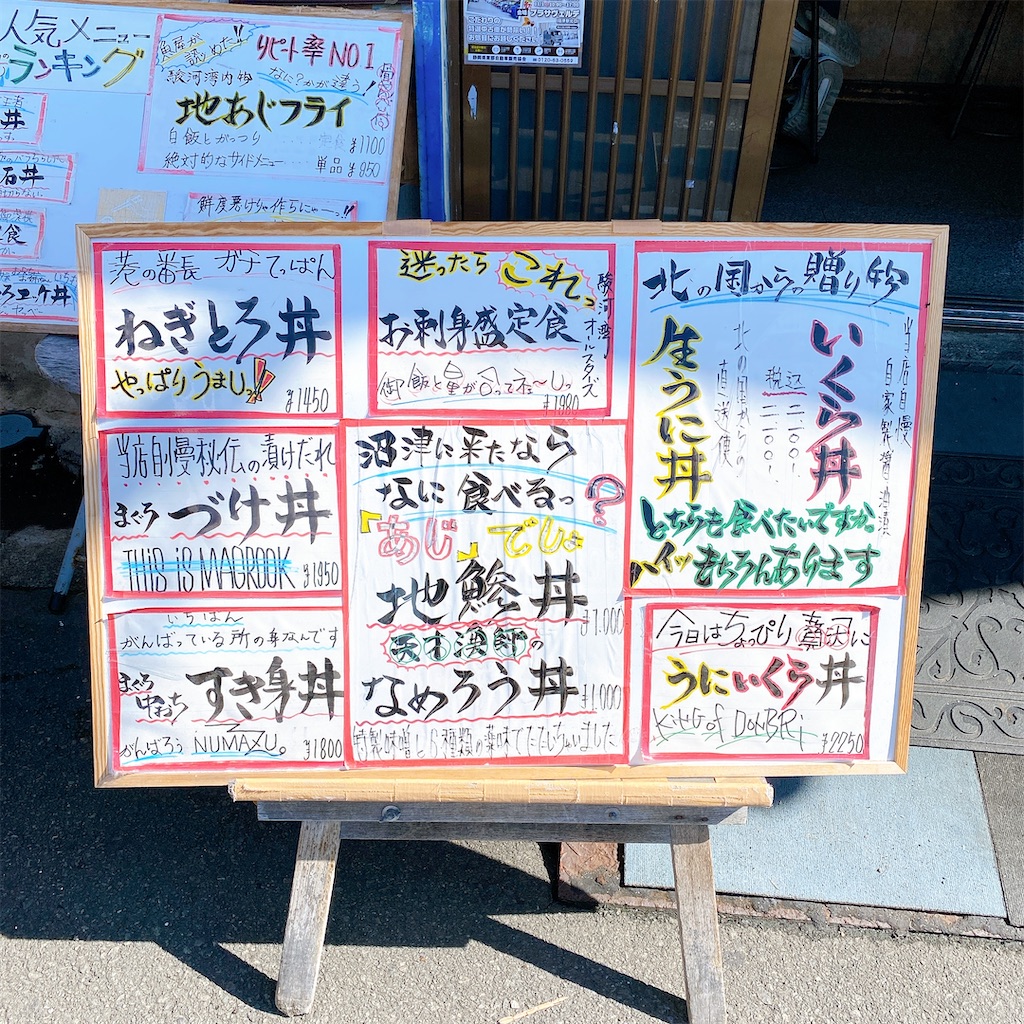 人気メニュー
ランキング
魚屋が
読めた!!
リピート率NO1
駿河湾内物
なに?かが違う!
地あじフライ
白飯とがっつり ¥1100
絶対的なサイドメニュー 単品 ¥850
鮮度悪けりゃ作らにゃーっ!!
丼
石丼
定食
プラサヴェルデ
0120-63-0559
港の番長 ガチてっぱん
ねぎとろ丼
やっぱりうましっ!!
¥1450
迷ったら これっ
駿河湾
オールスターズ
お刺身盛定食
¥1980
当店自慢秘伝の漬けだれ
まぐろ づけ丼
THIS iS MAGROOK ¥1950
いちばん
がんばっている所の身なんです
まぐろ
中おち すき身丼
がんばろう NUMAZU。 ¥1800
沼津に来たなら
なに食べるっ?
「あじ」でしょ
地鯵丼
¥1.000
天才漁師の
なめろう丼 ¥1.000
北の国からの贈り物
当店自慢
自家製醤油漬
いくら丼
税込
二二〇〇!
二一〇〇!
北の国からの
直送便
生うに丼
どちらも食べたいですか
ハイッもちろんあります
今日はちょっぴり贅沢に
うにいくら丼
KiNG of DONBRi ¥2250